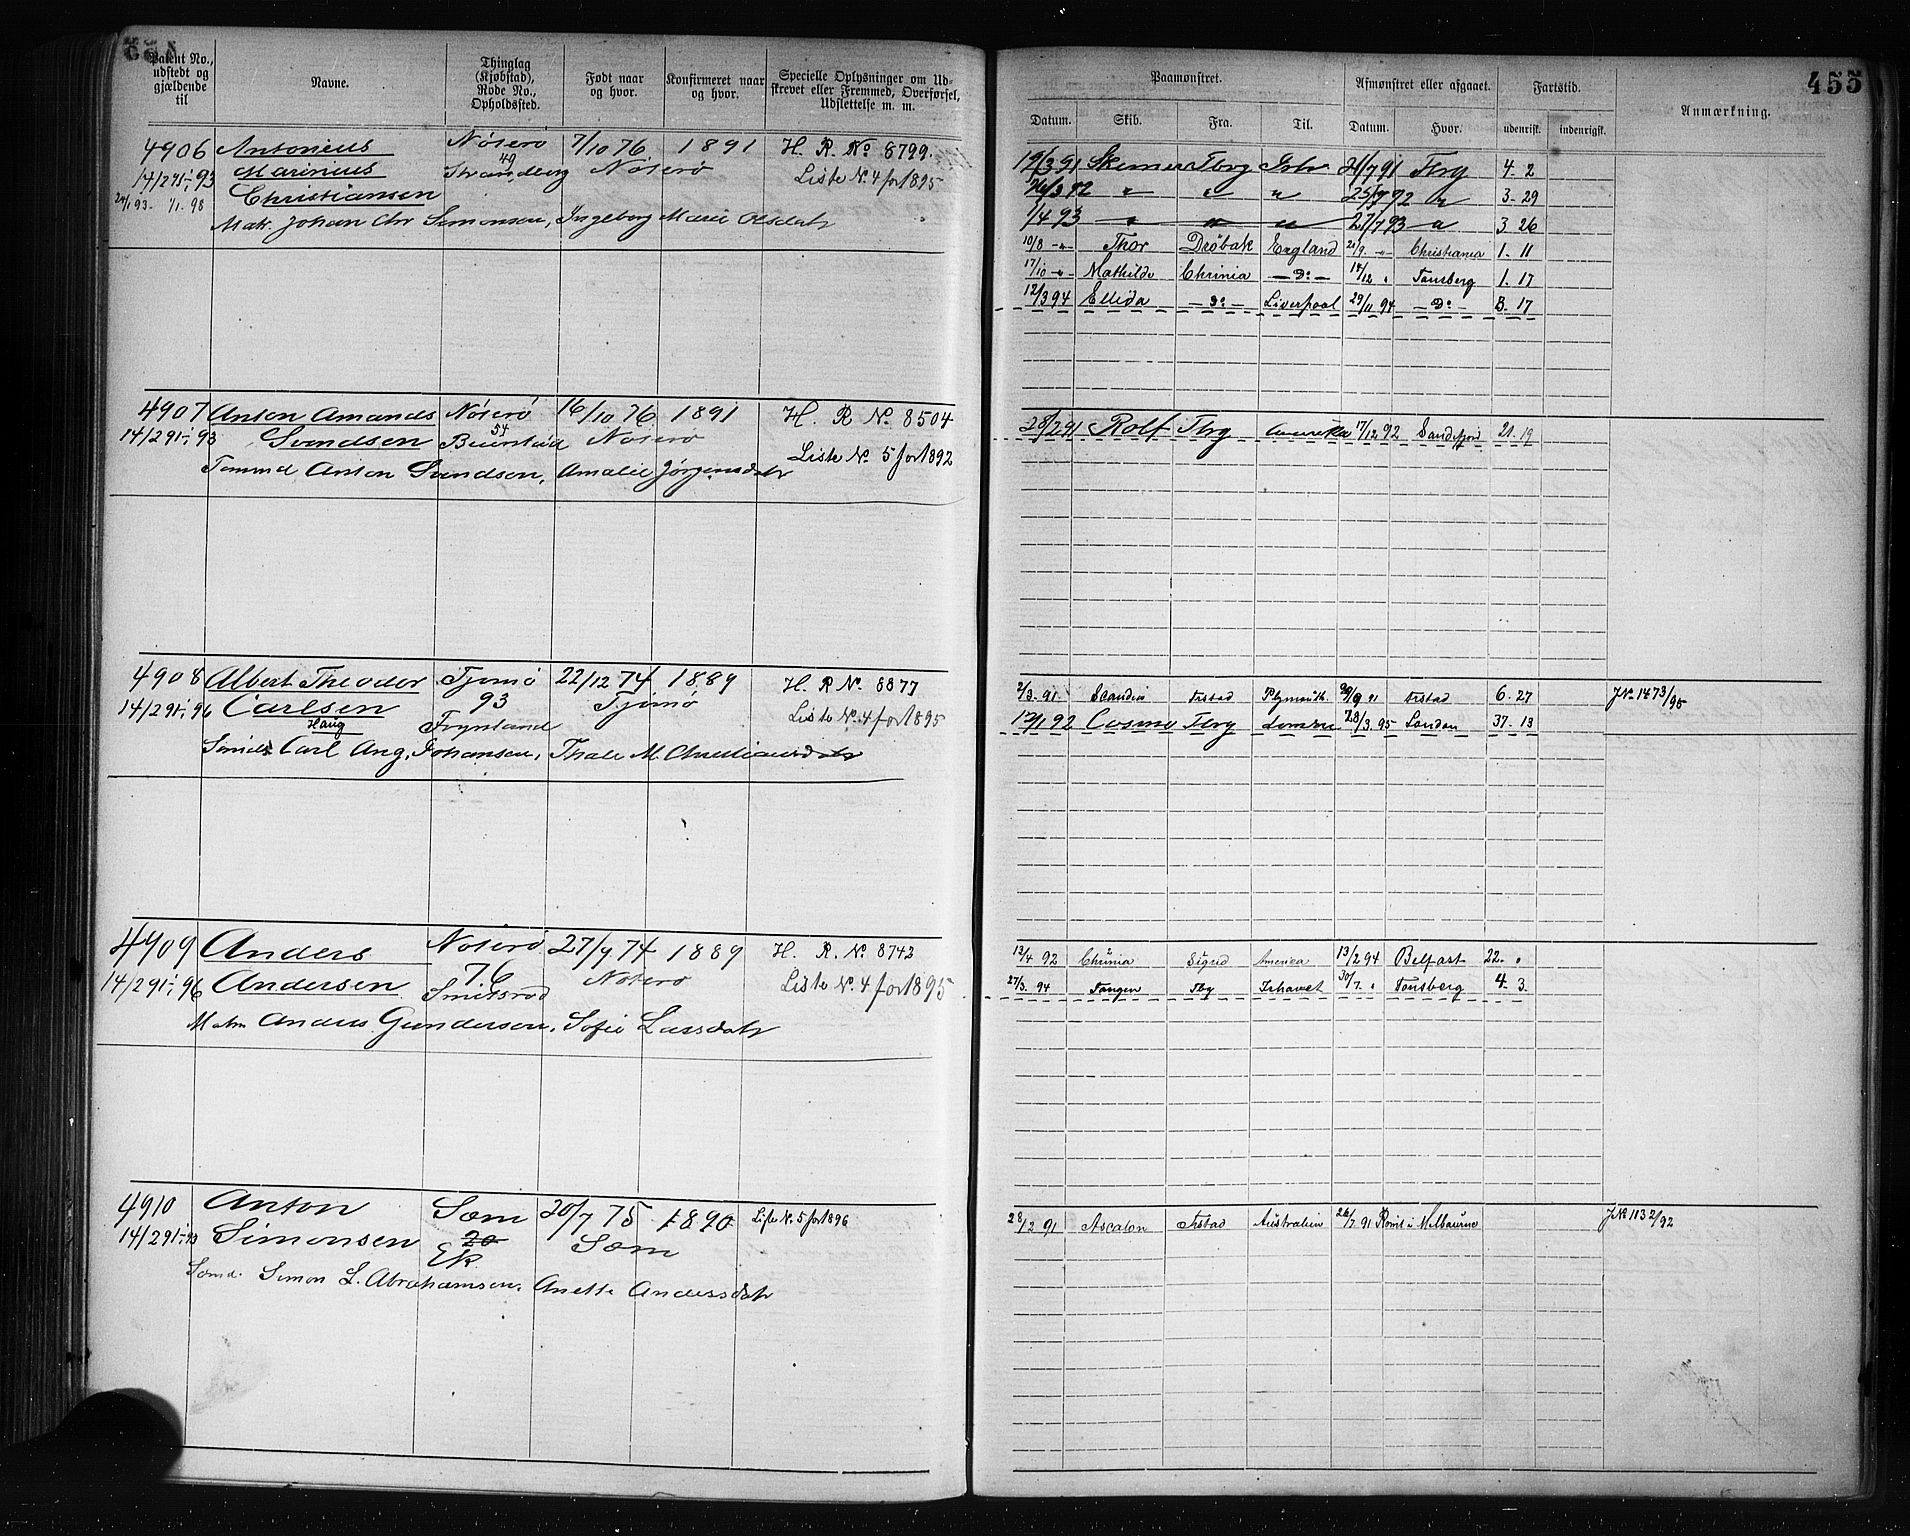 455
Patent No., udstedt og gjældende til
Navne.
Thinglag (Kjøbstad), Rode No., Opholdssted.
Født naar og hvor.
Konfirmeret naar og hvor.
Specielle Oplysninger om Udskrevet eller Fremmed, Overførsel, Udslettelse m. m.
Paamønstret.
Afmønstret eller afgaaet.
Fartstid.
Anmærkning.
Datum. Skib. Fra. Til. Datum. Hvor. udenrigsk. indenrigsk.
4906 Antonius Nøterø 7/10 76 1891 H. R. No 8799.
14/2 91-1/1 93 Marinius 49 Strandberg Nøterø Liste No. 4 for 1895
24/1 93 - 1/1 - 98 Christiansen
Mat. Johan Chr Simonsen, Ingeborg Marie Olsdatr
91 Tbrg Ish 21/7 91 Tbrg 4-2
26/3 92 " " " 25/7 92 " 3-29
1/4 93 " " " 27/7 93 " 3 26
10/8 -"- Thor Drøbak England 21/9 -"- Christiania 1. 11
17/10 -"- Mathilde Chrinia -Do- 14/12 " Tønsberg 1. 17
12/3 94 Ellida -Do- Liverpool 29/11 94 -Do- 8. 17
4907 Anton Amandus Nøterø 16/10 76 1891 H. R No. 8504
14/2 91-1/1 93 Svendsen 54 Nøterø Liste No 5 for 1892
Tømmd Anton Svendsen, Amalie Jørgensdatr
28/2 91 Rolf Tbrg Amerika 17/12 92 Sandefjord 21. 19
4908 Albert Theodor Tjømø 22/12 74 1889 H. R No. 8877
14/2 91-1/1 96 Carlsen 93 Tjømø Liste No. 4 for 1895
Haug Frynland
Carl Aug. Johansen, Thale M. Christiansdatr
2/3 - 91 Scandia Frstad Plymouth 29/9 91 Frstad 6 - 27 J No 1473/95
12/1 92 Cosmo Tbrg London 28/3 - 95 London 37 - 13
4909 Anders Nøterø 27/9 74 1889 H. R. No. 8742
14/2 91-1/1 96 Andersen 76 Smidsrød Nøterø Liste No. 4 for 1895
Matr. Anders Gundersen, Sofie Larsdatr
13/4 92 Chrinia Sigrid America 13/2 94 Belfast 22- "
27/3. 94 Tangen Tbg Ishavet 30/7. " Tønsberg 4. 3.
4910 Anton Sæm 20/7 75 1890 Liste No. 5 for 1896
14/2 91-1/1 93 Simonsen 20 Ek Sæm
Sømd. Simon L. Abrahamsen, Anette Andersdatr
28/2 91 Ascalon Frstad Australien 26/7 91 Rømt i Melbourne J No 1132/92